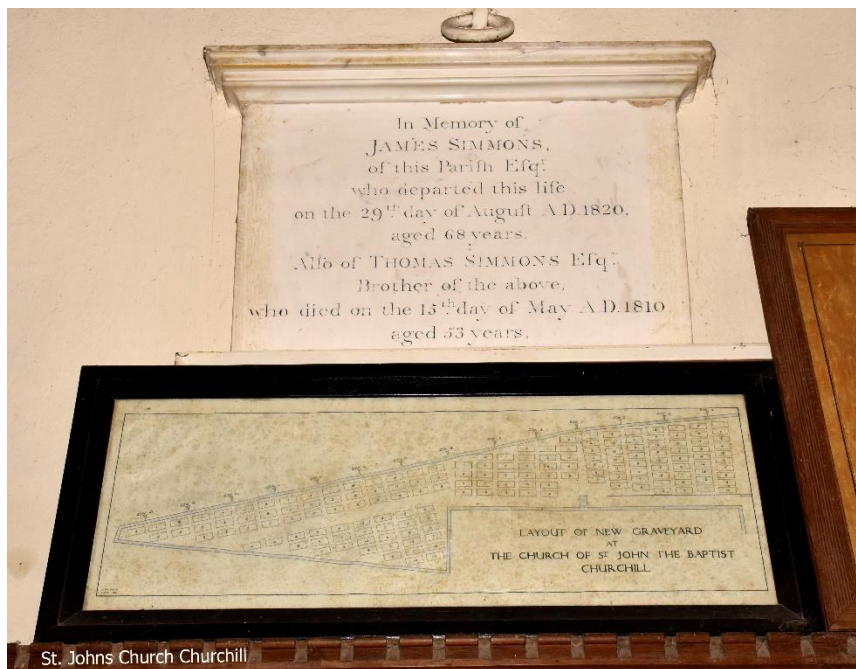 In Memory of
JAMES SIMMONS,
of this Pariſh Eſqr.
who departed this life
on the 29th day of Auguſt A.D. 1820,
aged 68 years.
Alſo of THOMAS SIMMONS Eſqr.
Brother of the above,
who died on the 15th day of May A.D. 1810
aged 53 years.
LAYOUT OF NEW GRAVEYARD
AT
THE CHURCH OF ST JOHN THE BAPTIST
CHURCHILL
St. Johns Church Churchill